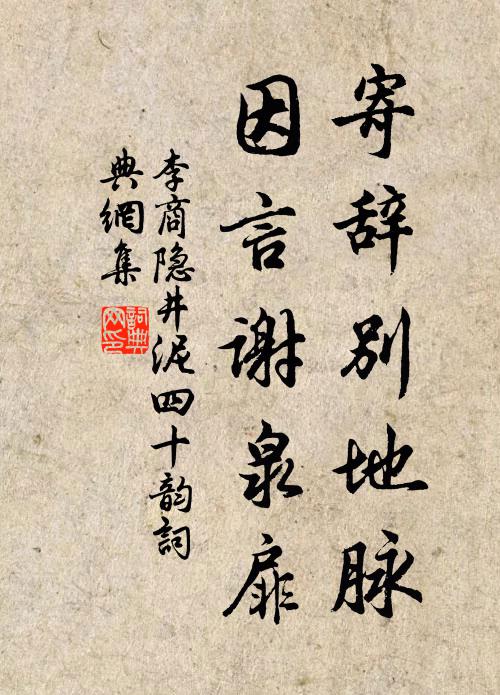 寄辞别地脉
因言谢泉扉
李商隐井泥四十韵词
典網集
詞典
网印